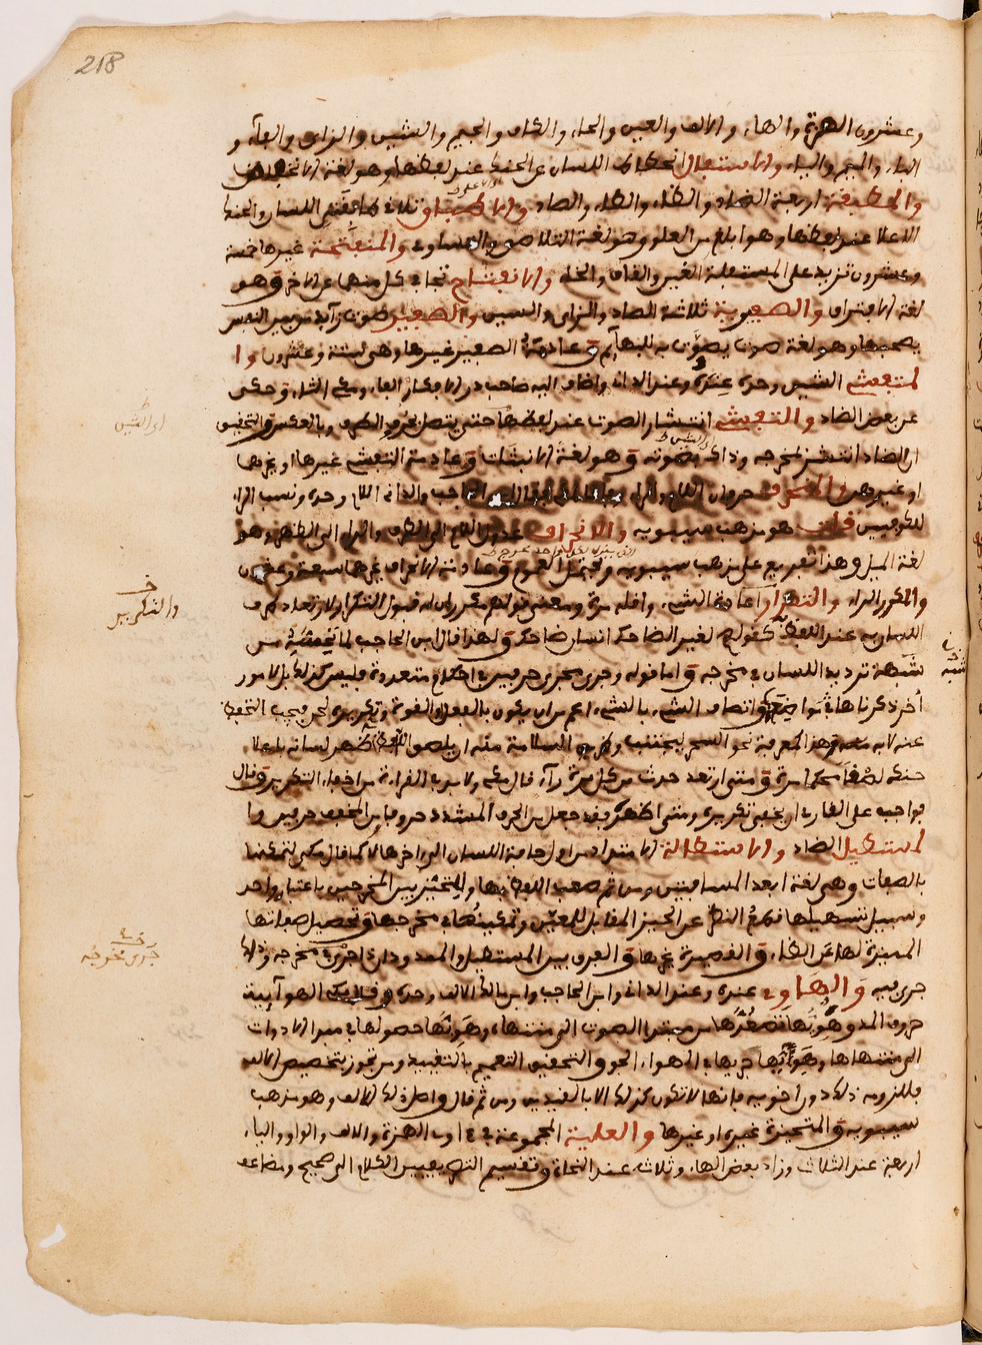 218
وعشرون الهمزة والهاء والالف والعين والحاء والكاف والجيم والشين والزاى والفاء و
الباء والميم والياء والاستفال انحطاط اللسان عن الحنك عند لفظها وهو لغة الانخفاض
والمطبقة اربعة الضاد والطاء والظاء والصاد والاطباق تلاقى طائفتى اللسان والحنك
الاعلا عند لفظها وهو ابلغ من العلو وهو لغة التلاصق والتساوى والمنفتحة غيرها خمسة
وعشرون تزيد على المستفلة الغين والقاف والخاء والانفتاح تجافى كل منهما عن الاخر وهو
لغة الافتراق والصفيرية ثلاثة الصاد والزاى والسين والصفير صوت زآيد من بين الشفتين
يصحبها وهو لغة صوت يصوّت به للبهآيم وعادمة الصفير غيرها وهى ستة وعشرون وا
لمتفشى الشين وحده عنده وعند الدانى واضاف اليه صاحب در الافكار الفاء ومكى الثاء وحكى
عن بعض الضاد والتفشى انتشار الصوت عند لفظها حتى يتصل بحروف الطرف وبالعكس والتحقيق
ان الضاد انتشر بمخرجه وذاك بصوته وهو لغة الانبثاث وعادمة التفشى غيرها او غيرها
او غيرهن والمنحرف حرفان اللام والراء الحاجب والدانى اللام وحده ونسب الى
للكوفيين قلت هو مذهب سيبويه والانحراف اللام الى الطرف والراء الى الظهر وهو
لغة الميل وهذا تفريع على مذهب سيبويه ويحتمل العموم وعادمة الانحراف غيرها سبعة وعشرون
والمكرر الراء والتكرار اعادة الشىء واقله مرة ومعنى قولهم مكرر ان له قبول التكرار لارتعاد طرف
اللسان به عند اللفظ كقولهم لغير الضاحك انسان ضاحك ولهذا قال ابن الحاجب لما تحسّه من
شبهة ترديد اللسان فى مخرجه واما قوله وجرى مجرى حرفين فى احكام متعددة فليس كذلك بل لامور
أخر ذكرناها فى مواضعها واتصاف الشىء بالشىء اعم من ان يكون بالفعل او القوة وتكريره لحن فيجب التحفظ
عنه لا به معرفة وهذا كمعرفة نحو السحر ليجتنب وطريق السلامة منه ان يلصق اللافظ ظهر لسانه باعلا
حنكه لصقا محكما مرة ومتى ارتعد حدث من كل مرة رآء قال مكى ولا بد فى القراءة من اخفاء التكرير وقال
فواجب على القارى ان يخفى تكريره ومتى اظهره فقد جعل من الحرف المشدد حروفا ومن المخفف حرفين وا
لمستطيل الضاد والاستطالة الامتداد من اول حافة اللسان الى اخرها كما قال مكى لتمكنها
بالصفات وهى لغة ابعد المسافتين ومن ثم صعب اللفظ بها وللتحيّز بين المخرجين باعتبار واحد
وسبيل تسهيلها قطع النظر عن الحيز المقابل للمعيّن وتمكينها فى مخرجها وتحصيل صفاتها
المميزة لها عن الظاء والقصيرة غيرها والفرق بين المستطيل والممدود ان ذا جرى فى مخرجه وذاك
جرى فيه والهاوى عنده وعند الدانى وابن الحاجب وابن مالك الالف وحده وقال مكى الهوآئية
حروف المد وهويّها تصعّدها من مبتدا الصوت الى منتهاه وهويّها حصولها فى مبدا الادوات
الى منتهاها وهوآئيّها جريها فى الهواء الجو والتحقيق التعميم بالتقييد ومن تجوز بتخصيص الالف
فللزومه ذلك دون اخويه فانها لا تكون كذلك الا بالقيدين ومن ثم قال واصل ذلك الالف وهو مذهب
سيبويه والمتحيزة غيره او غيرها والعلية المجموعة فى اوى الهمزة والالف والواو والياء
اربعة عند الثلاث وزاد بعض الهاء وثلاث عند النحاة وتقسيم التصريفيين الكلام الى صحيح ومضاعف
اى الشين
والتكرير
جرى مخرجه